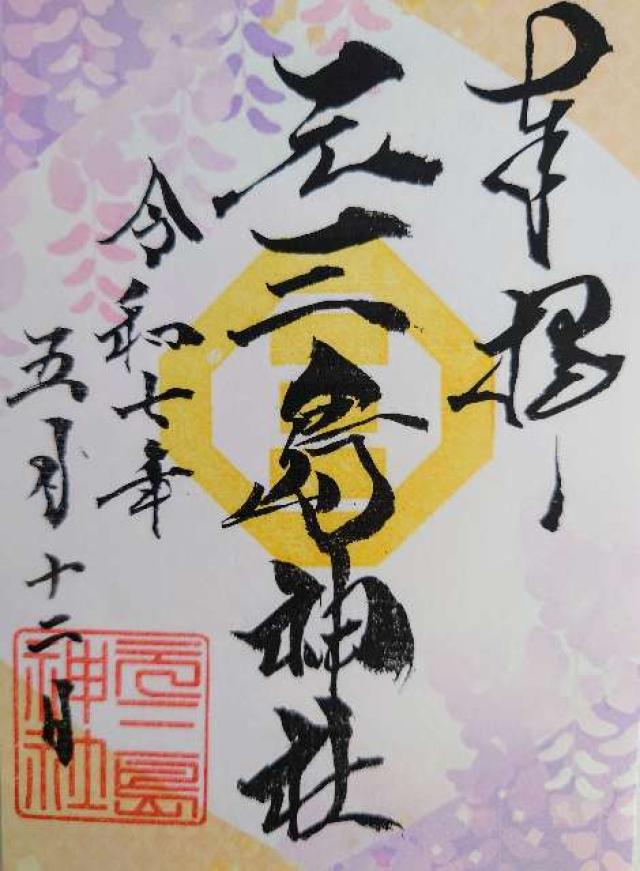 奉拝
元三島神社
令和七年
五月十二日
元三島
神社